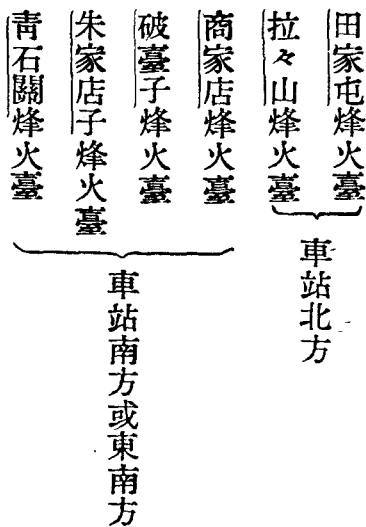 田家屯烽火臺
拉々山烽火臺
車站北方
商家店烽火臺
破臺子烽火臺
朱家店子烽火臺
青石關烽火臺
車站南方或東南方